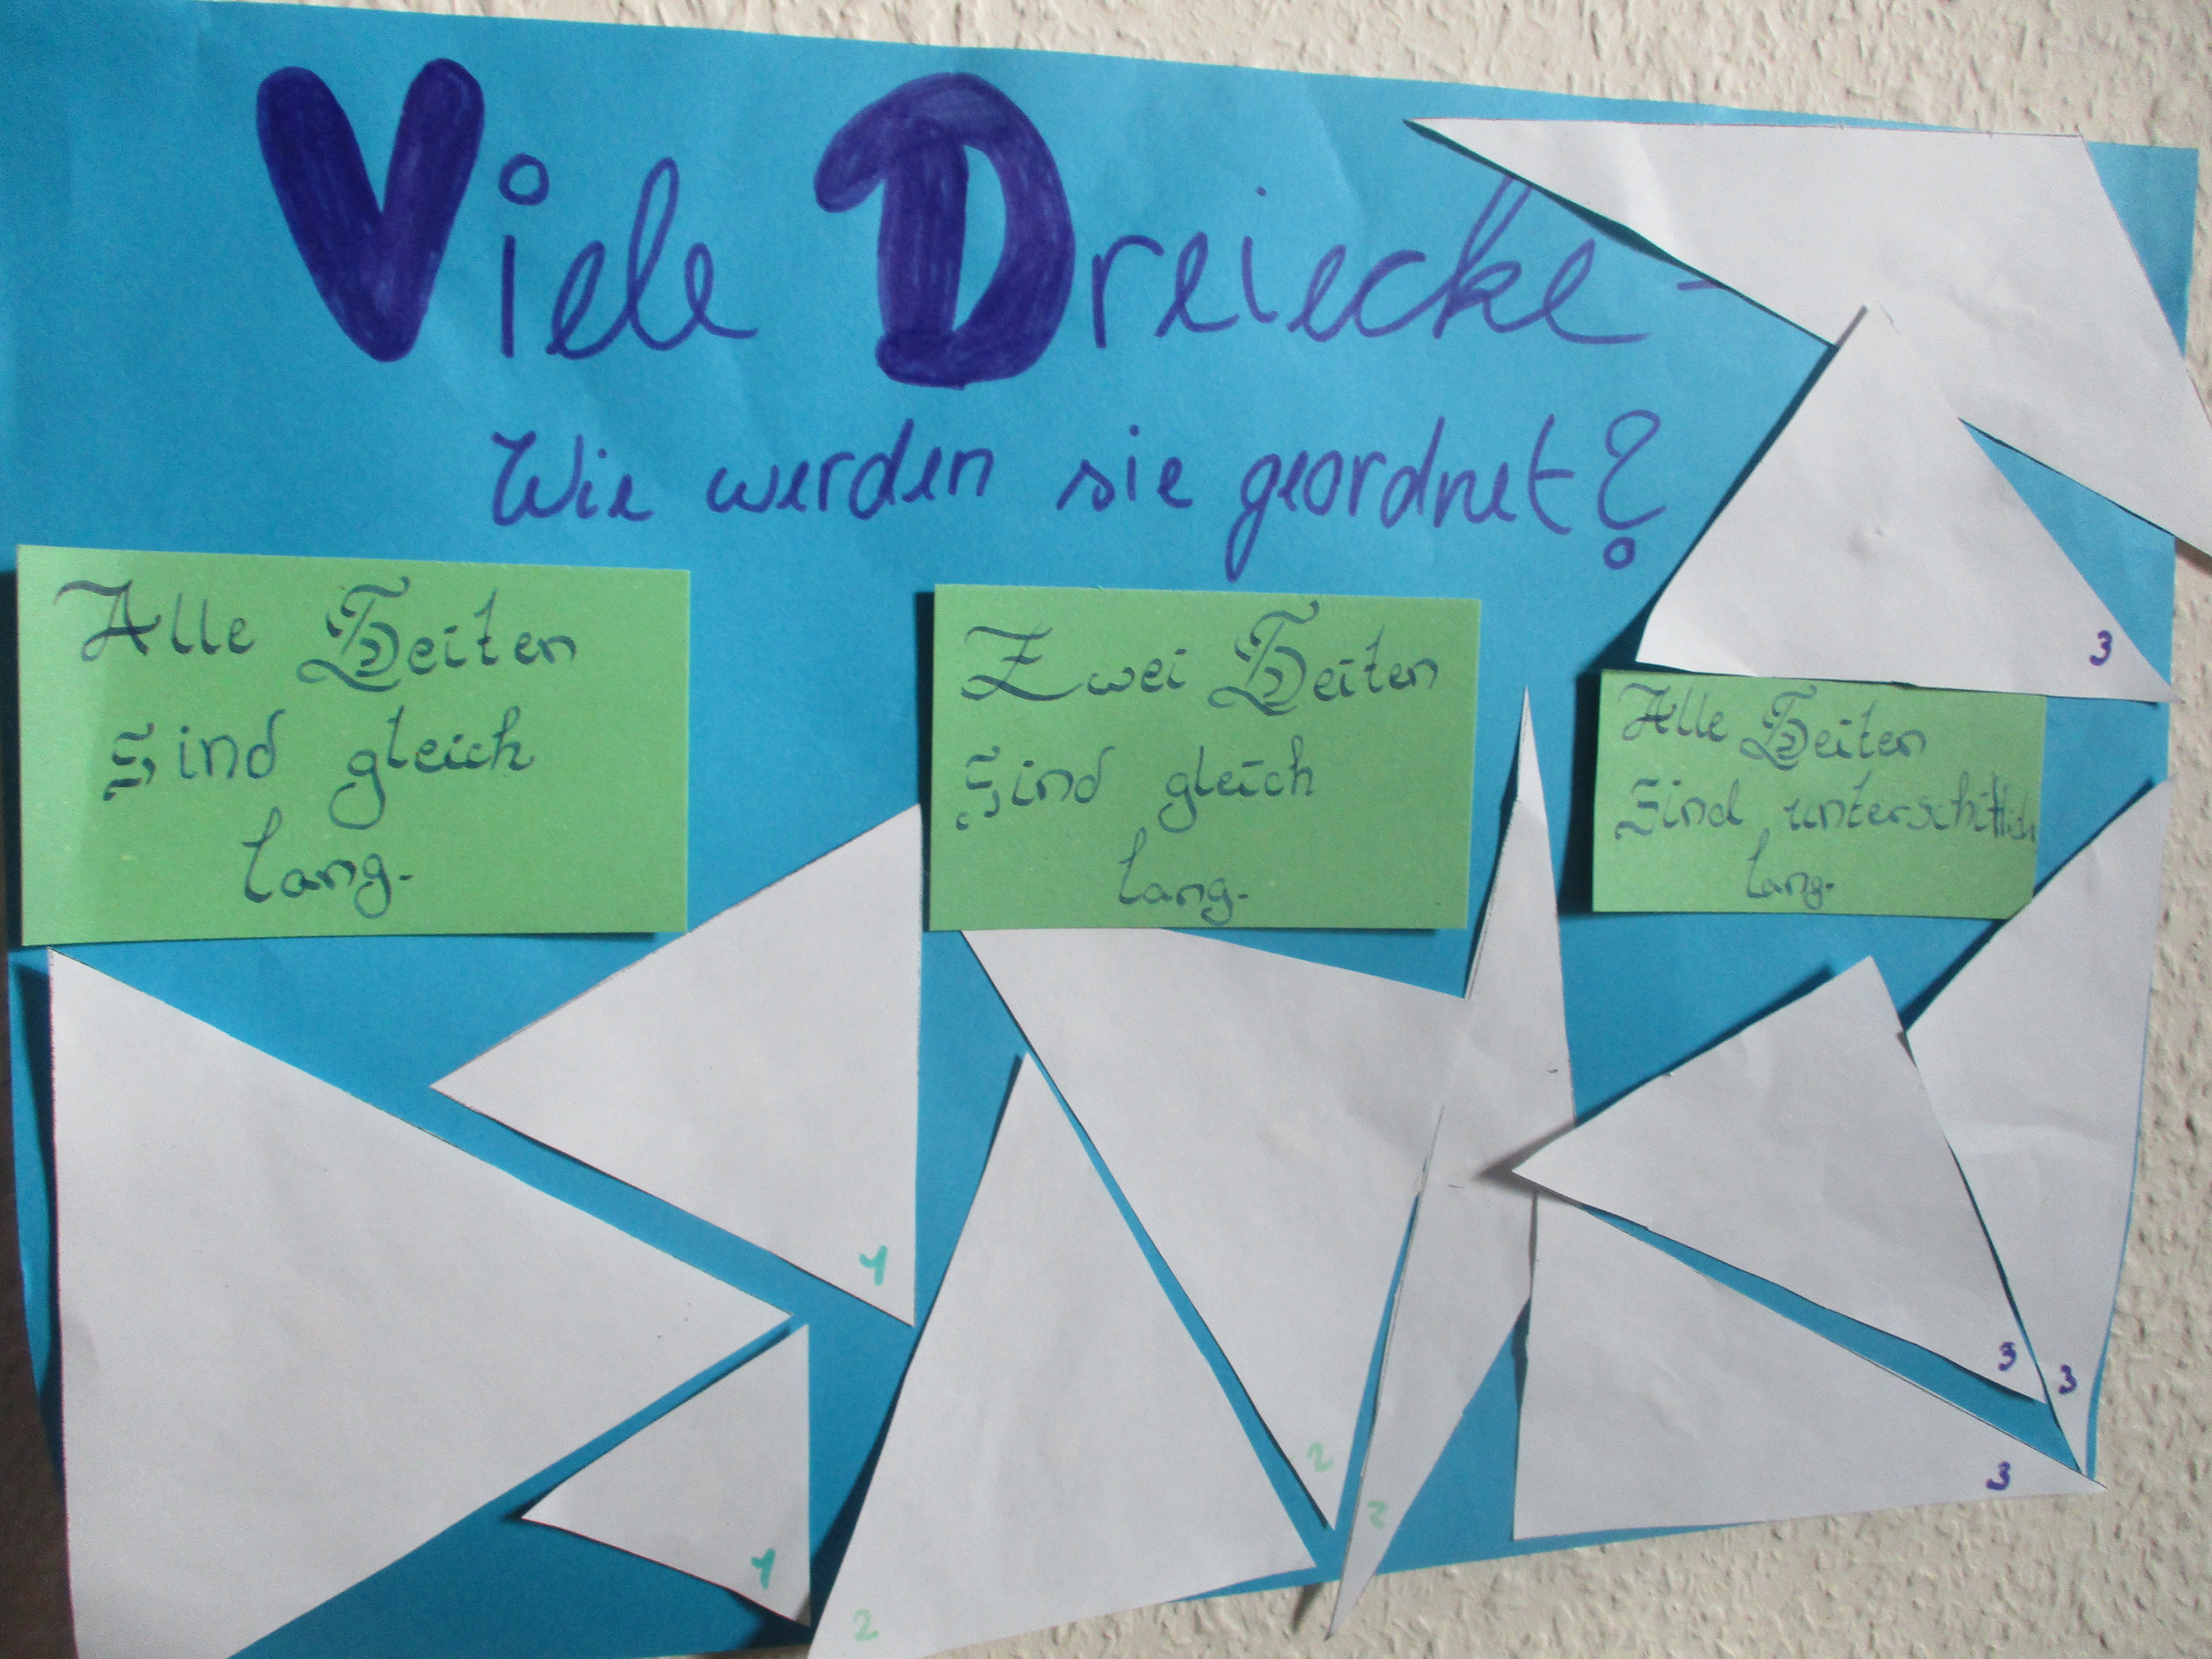 Viele Dreiecke -
Wie werden sie geordnet?
Alle Seiten
sind gleich
lang.
Zwei Seiten
sind gleich
lang.
Alle Seiten
sind unterschittlich
lang.
3
1
1
2
2
2
3
3
3